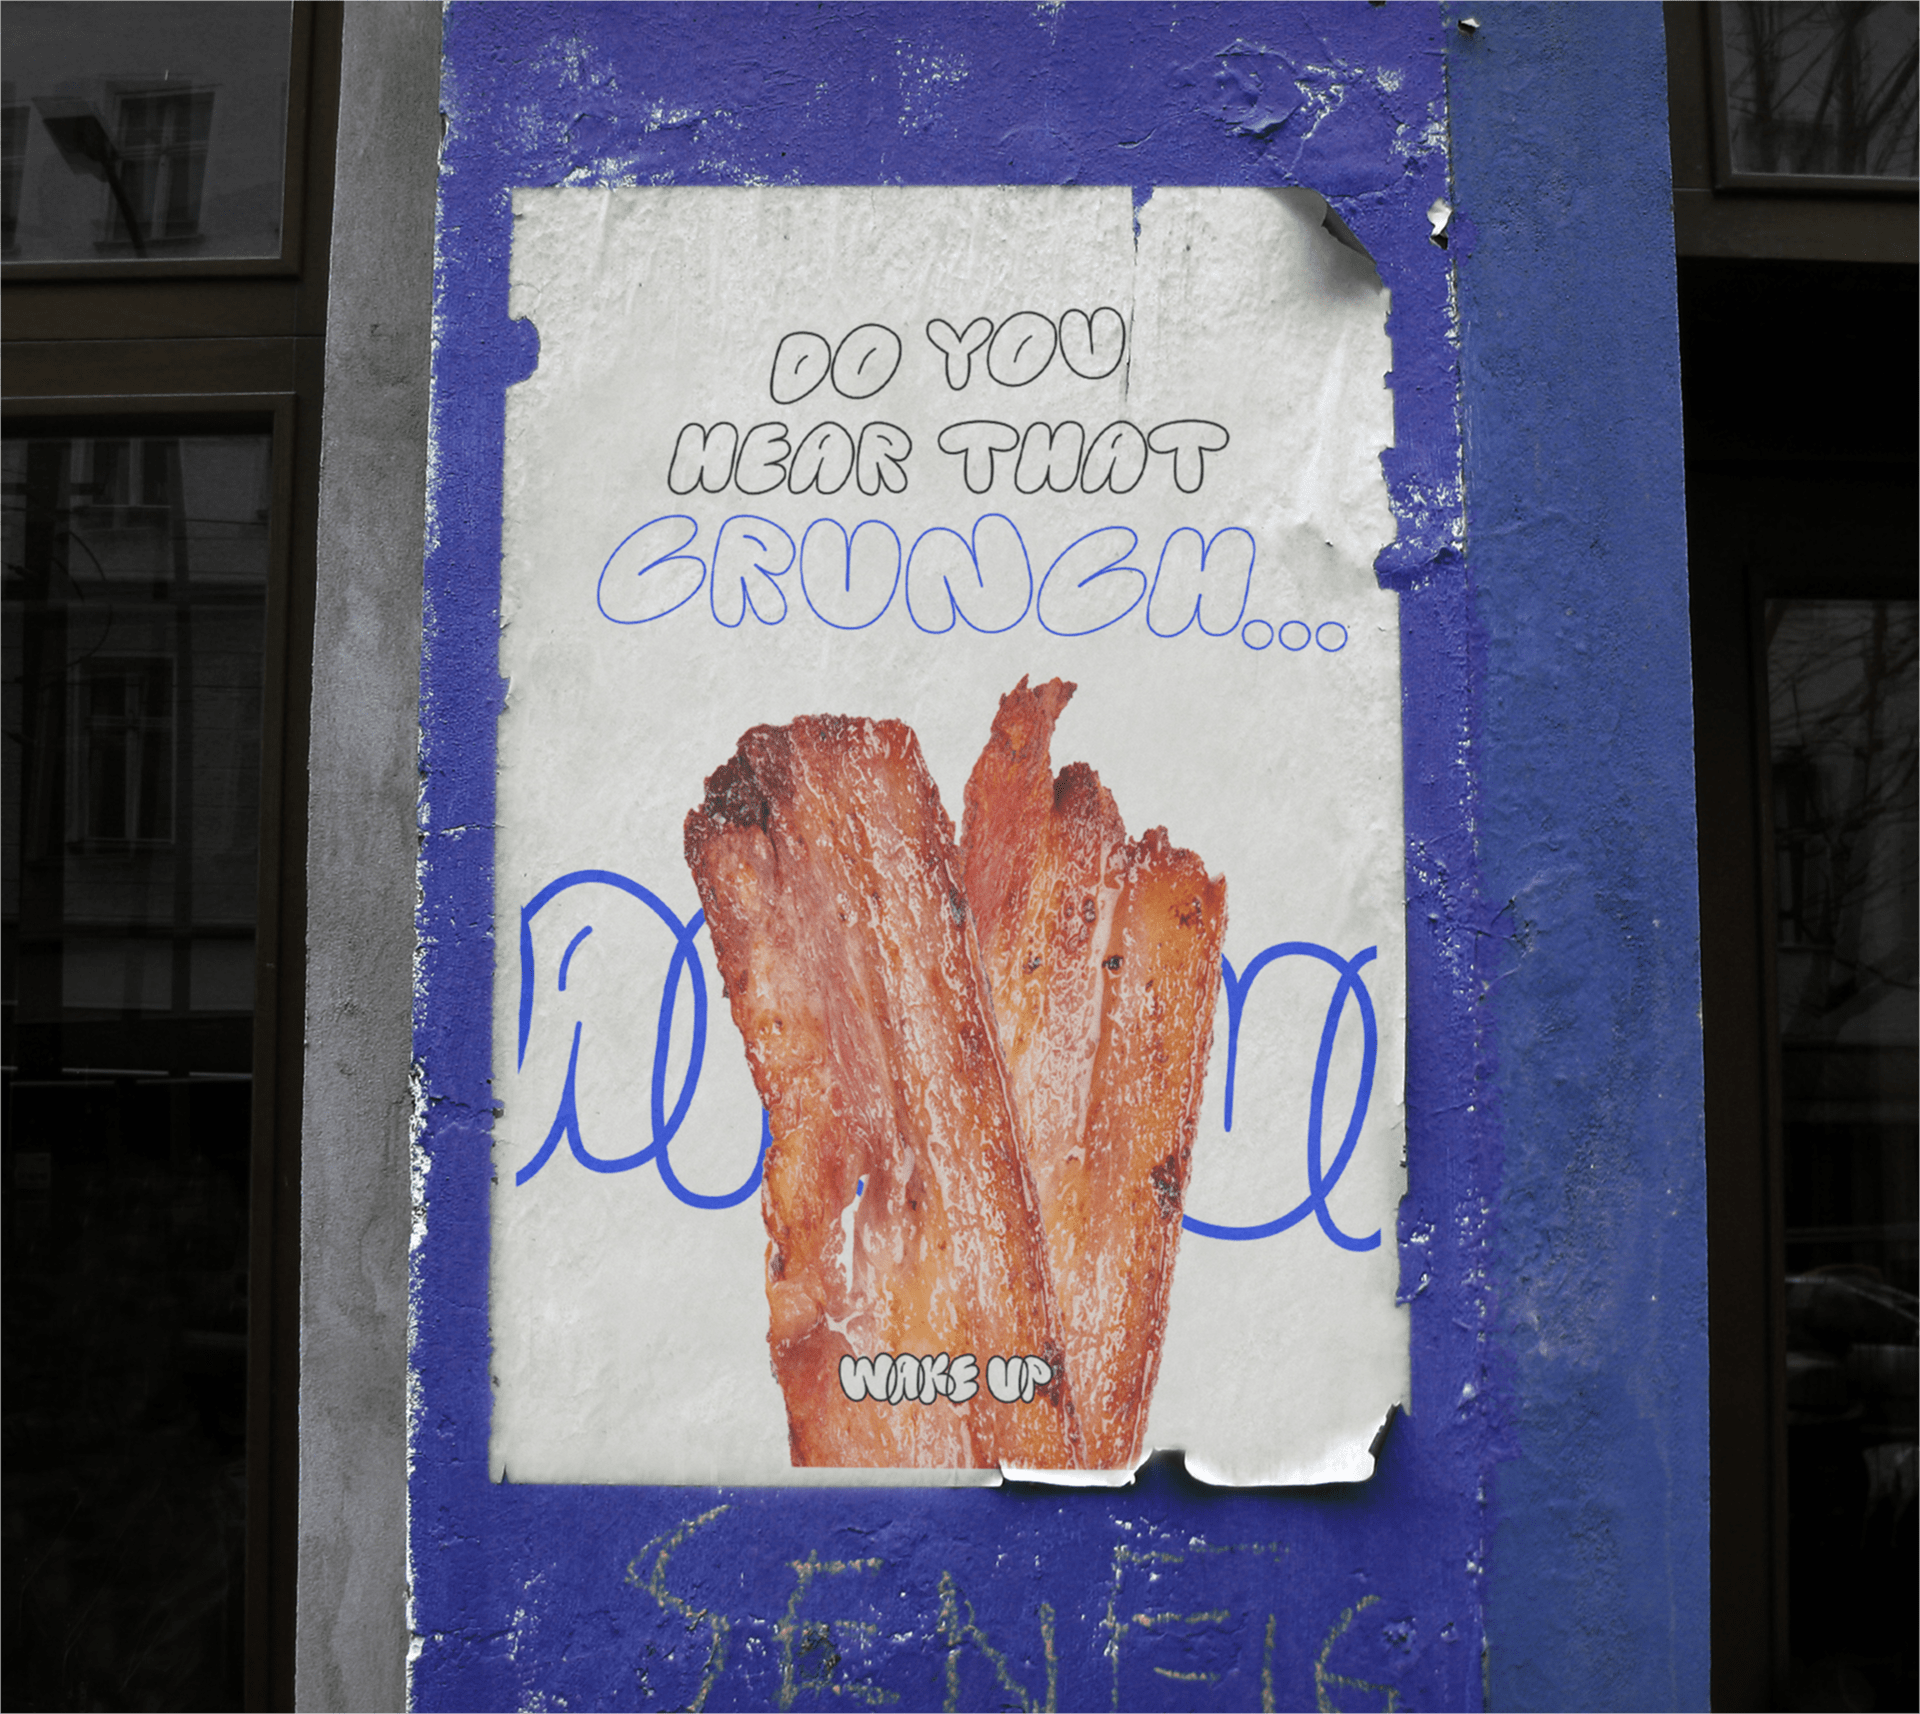 DO YOU
HEAR THAT
CRUNCH...
WAKE UP